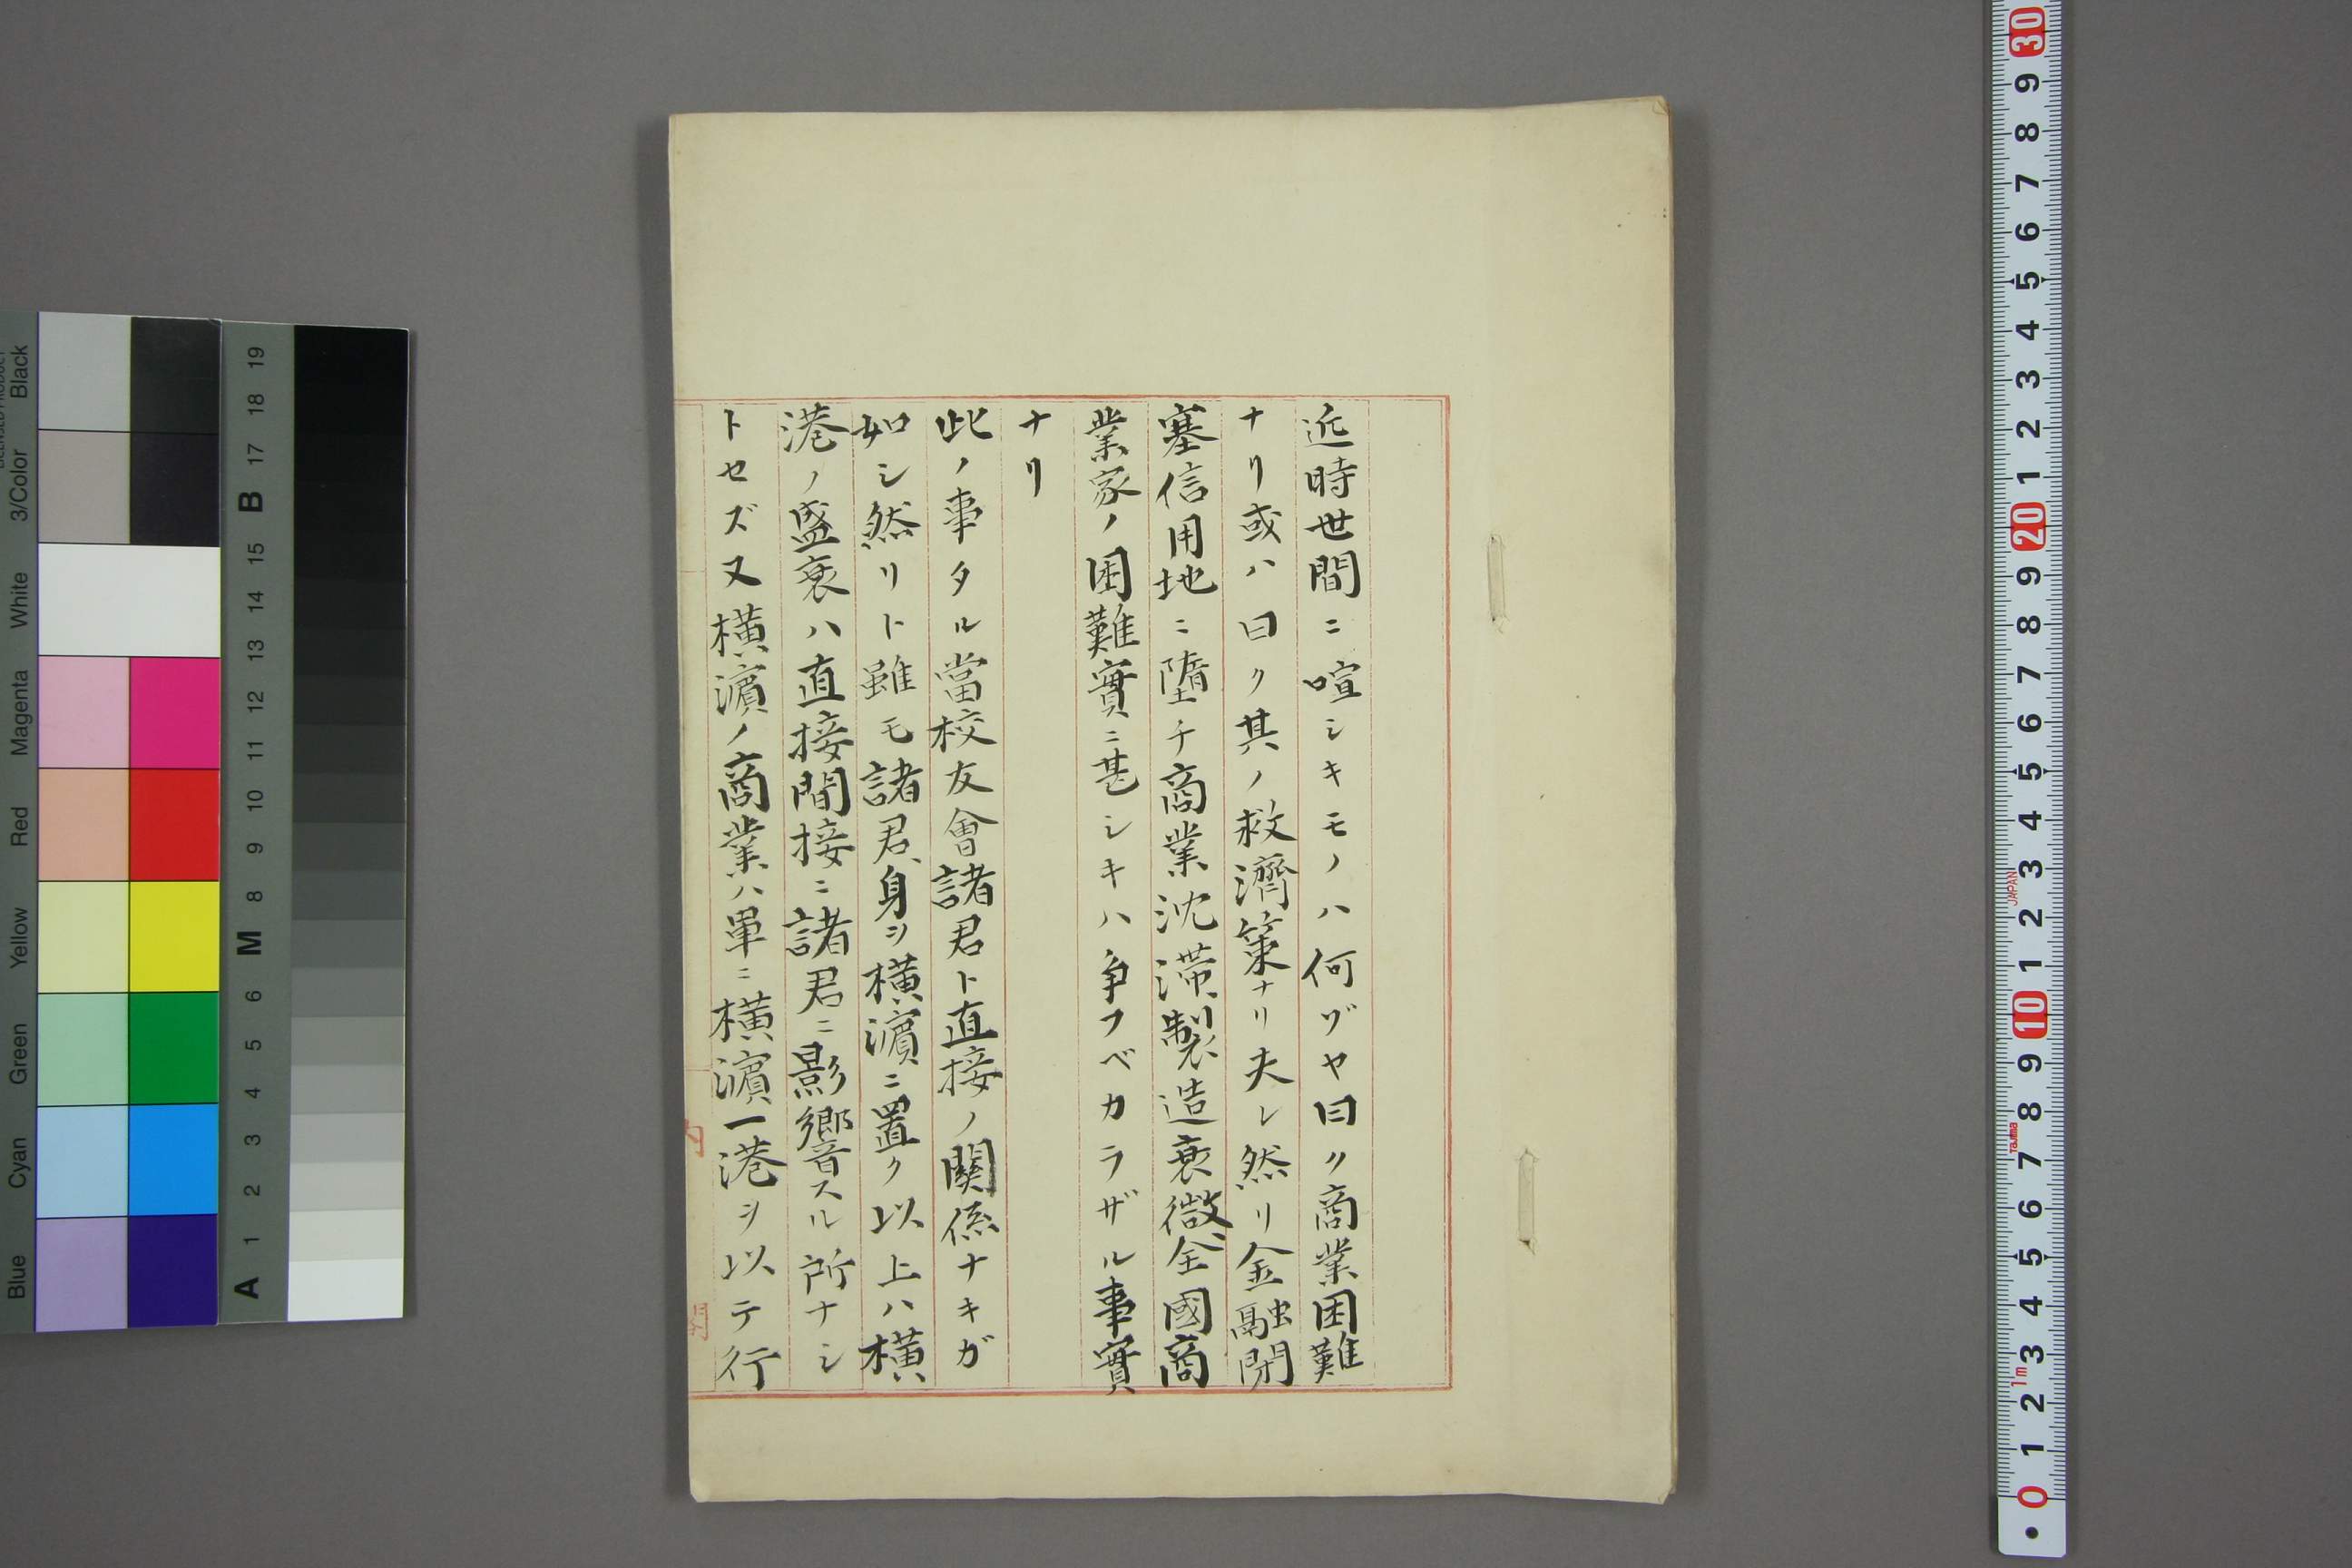 近時世間ニ喧シキモノハ何ゾヤ曰ク商業困難
ナリ或ハ曰ク其ノ救濟策ナリ夫レ然リ金融閉
塞信用地ニ墮チ商業沈滯製造衰微全國商
業家ノ困難實ニ甚シキハ争フベカラザル事實
ナリ
此ノ事タル當校友會諸君ト直接ノ關係ナキガ
如シ然リト雖モ諸君身ヲ横濱ニ置ク以上ハ横
港ノ盛衰ハ直接間接ニ諸君ニ影響スル所ナシ
トセズ又横濱ノ商業ハ單ニ横濱一港ヲ以テ行
Black
3/Color
White
Magenta
Red
Yellow
Green
Cyan
Blue
19
18
17
B
15
14
13
12
11
10
9
8
M
6
5
4
3
2
1
A
30
9
8
7
6
5
4
3
2
1
20
9
8
7
6
5
4
3
JAPAN
2
1
10
9
8
Tajima
7
6
5
4
3
1m
2
1
0